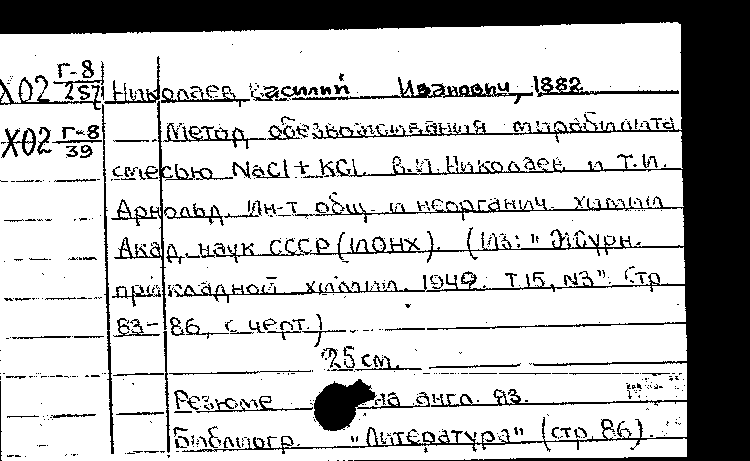 Х02 Г-8/257 Николаев, Василий Иванович, 1882
Х02 Г-8/39 Метод обезвоживания мирабилита
смесью NaCl + KCl. В.И. Николаев и Т.И.
Арнольд. Ин-т общ. и неорганич. химии
Акад. наук СССР (ИОНХ). (Из: "Журн.
прикладной химии. 1942. Т 15, N3". Стр
83-86, с черт.)
25 см.
Резюме на англ. яз.
Библиогр. "Литература" (стр. 86).